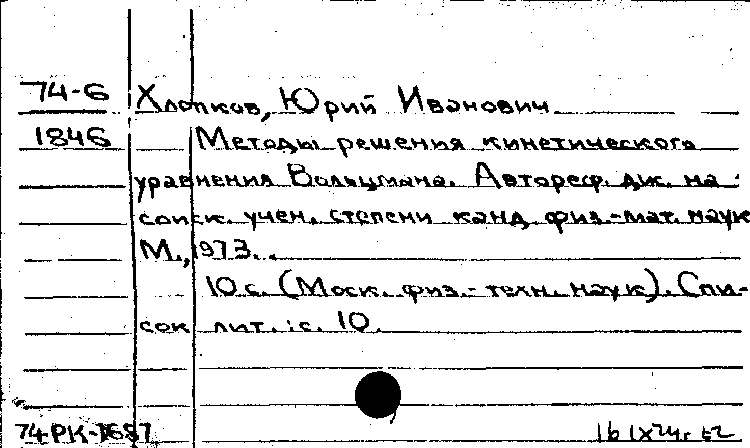 74-6 Хлопков, Юрий Иванович
1846 Методы решения кинетического
уравнения Больцмана. Автореф. дис. на
соиск. учен. степени канд. физ.-мат. наук
М., 1973.
10 с. (Моск. физ.-техн. наук). Спи-
сок лит.: с. 10.
74РК-1687
16 IX 74г.